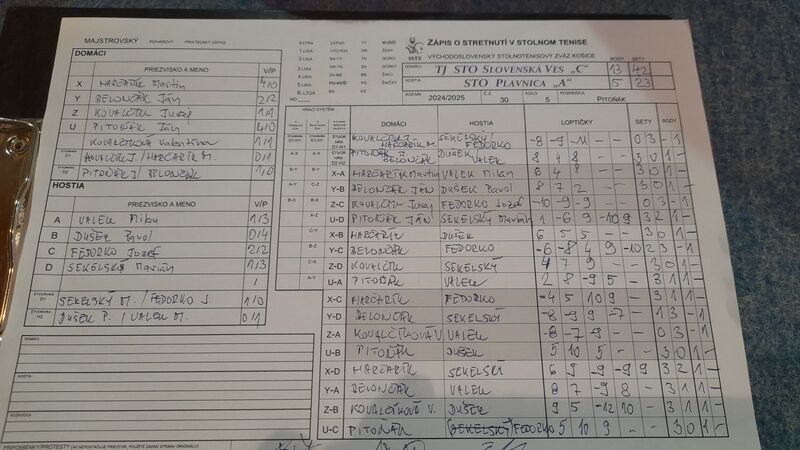 MAJSTROVSKÝ POHÁROVÝ PRIATEĽSKÝ ZÁPAS
DOMÁCI
PRIEZVISKO A MENO V/P
X HARČARÍK Martin 4/0
Y BELONČÁK Ján 2/2
Z KOVALČÍK Juraj 1/1
U PITOŇÁK Ján 4/0
KOVALČÍKOVÁ Valentína 1/1
D1 KOVALČÍK J. / HARČARÍK M. 0/1
D2 PITOŇÁK J / BELONČÁK 1/0
HOSTIA
PRIEZVISKO A MENO V/P
A VALEK Milan 1/3
B DUŠEK Pavol 0/4
C FEDORKO Jozef 2/2
D SEKELSKÝ Marián 1/3
SEKELSKÝ M. / FEDORKO J. 1/0
DUŠEK P. / VALEK M. 0/1
DOMÁCI:
HOSTIA:
ROZHODCA:
EXTRA ZÁPAS TT
1.LIGA
2.LIGA
3.LIGA
4.LIGA
5.LIGA
6.LIGA
ZÁPIS O STRETNUTÍ V STOLNOM TENISE
VÝCHODOSLOVENSKÝ STOLNOTENISOVÝ ZVÄZ KOŠICE
BODY SETY
DOMÁCI TJ STO SLOVENSKÁ VES „C" 13 42
HOSTIA STO PLAVNICA „A" 5 23
ROČNÍK 2024/2025 Č.Z. 30 KOLO 5 ROZHODCA PITOŇÁK
HRACÍ SYSTÉM
DOMÁCI HOSTIA LOPTIČKY SETY BODY
ŠTVOR HRA D1-H1 KOVALČÍK J. HARČARÍK M. SEKELSKÝ/ FEDORKO -8 -9 -11 - - 0 3 - 1
ŠTVOR HRA D2-H2 PITOŇÁK J. BELONČÁK DUŠEK VALEK 2 4 8 - - 3 0 1 -
X-A HARČARÍK Martin VALEK Milan 6 4 8 - - 3 0 1 -
Y-B BELONČÁK JÁN DUŠEK Pavol 8 7 2 - - 3 0 1 -
Z-C KOVALČÍK Juraj FEDORKO Jozef -10 -9 -9 - - 0 3 - 1
U-D PITOŇÁK JÁN SEKELSKÝ Marián 1 -6 9 -10 9 3 2 1 -
X-B HARČARÍK DUŠEK 6 5 5 - - 3 0 1 -
Y-C BELONČÁK FEDORKO -6 -8 4 9 -10 2 3 - 1
Z-D KOVALČÍK SEKELSKÝ 4 7 9 - - 3 0 1 -
U-A PITOŇÁK VALEK 2 8 -9 5 - 3 1 1 -
X-C HARČARÍK FEDORKO -4 5 10 9 - 3 1 1 -
Y-D BELONČÁK SEKELSKÝ -8 -9 9 -7 - 1 3 - 1
Z-A KOVALČÍKOVÁ V VALEK -8 -7 -9 - - 0 3 - 1
U-B PITOŇÁK DUŠEK 5 10 5 - - 3 0 1 -
X-D HARČARÍK SEKELSKÝ 6 9 -9 -9 9 3 2 1 -
Y-A BELONČÁK VALEK 8 7 -9 8 - 3 1 1 -
Z-B KOVALČÍKOVÁ V. DUŠEK 9 5 -12 10 - 3 1 1 -
U-C PITOŇÁK FEDORKO 5 10 9 - - 3 0 1 -